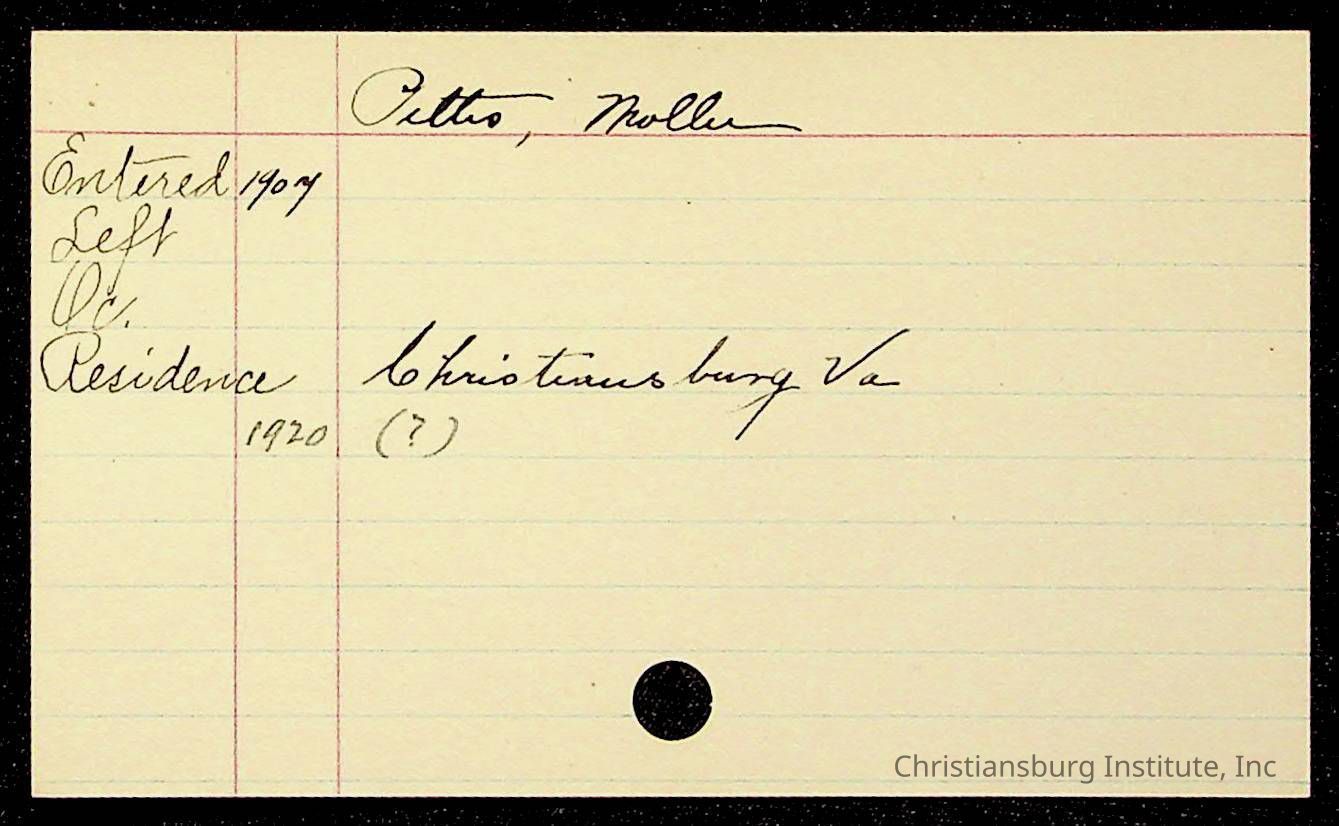 Pettis, Mollie
Entered 1907
Left
Oc.
Residence Christiansburg Va
1920 (?)
Christiansburg Institute, Inc